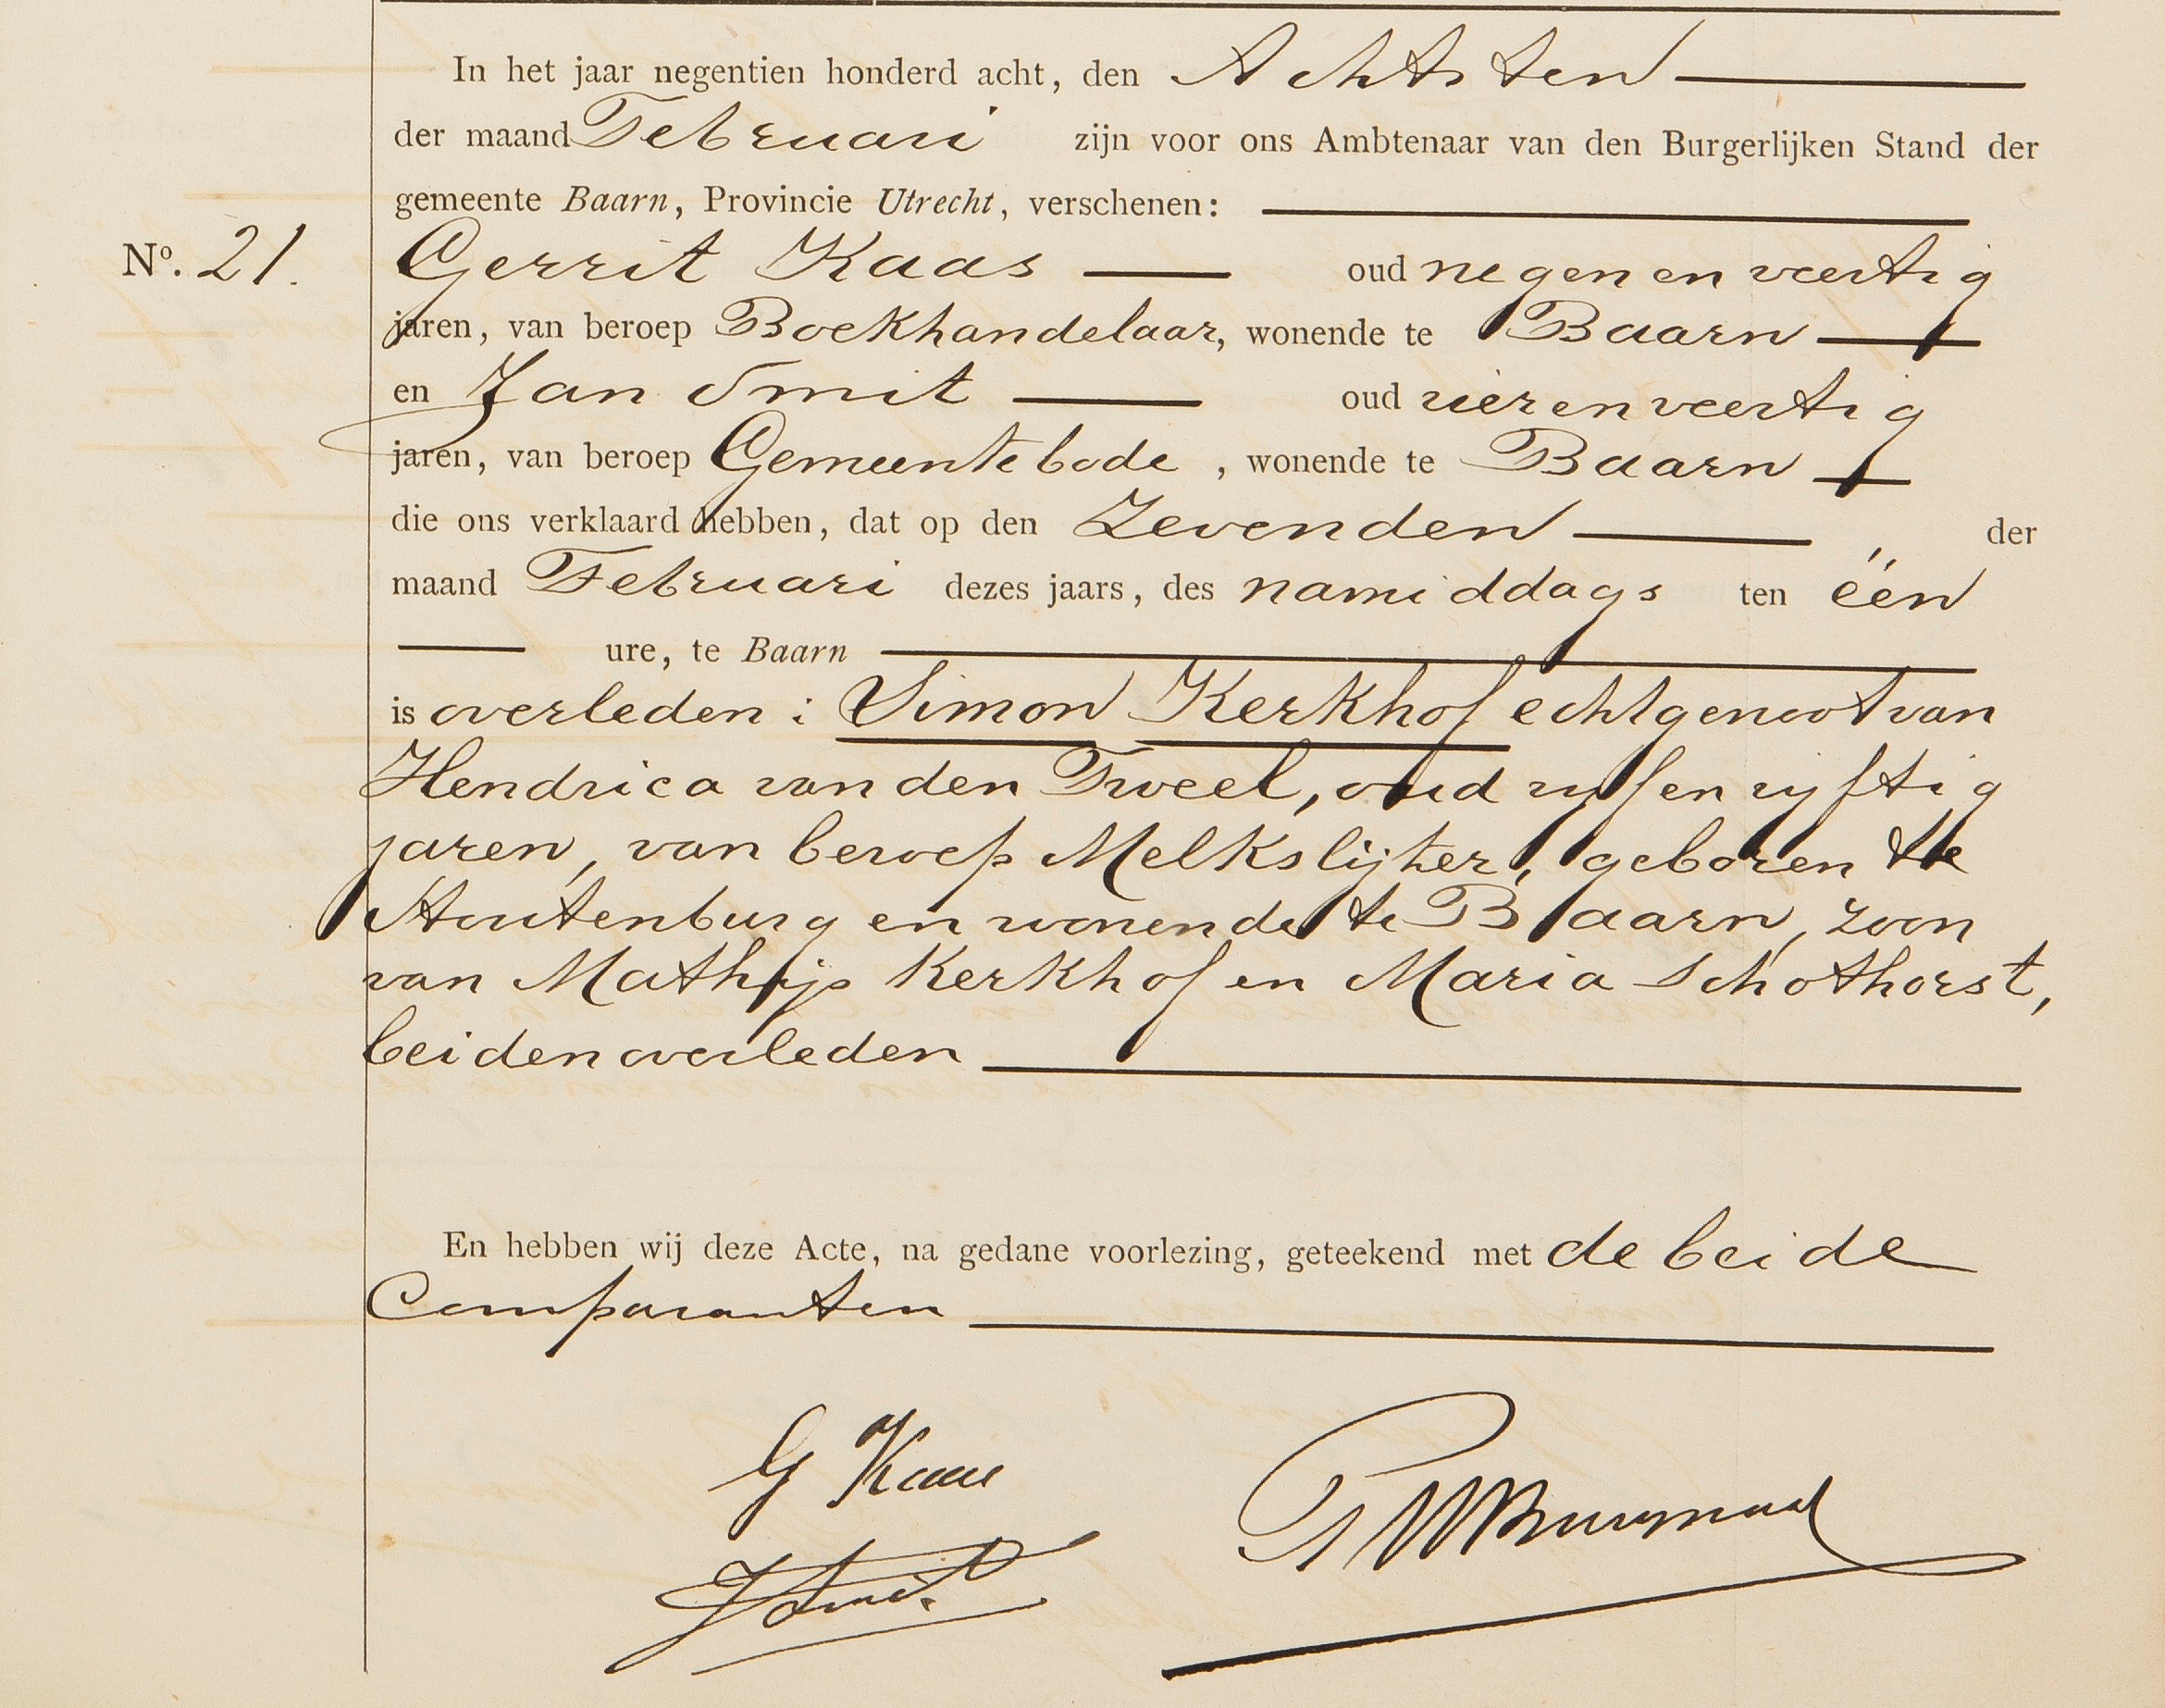 In het jaar negentien honderd acht, den Achtsten
der maand Februari zijn voor ons Ambtenaar van den Burgerlijken Stand der
gemeente Baarn, Provincie Utrecht, verschenen:
No. 21. Gerrit Kaas oud negen en veertig
jaren, van beroep Boekhandelaar, wonende te Baarn
en Jan Smit oud vier en veertig
jaren, van beroep Gemeentebode, wonende te Baarn
die ons verklaard hebben, dat op den Zevenden der
maand Februari dezes jaars, des namiddags ten één
ure, te Baarn
is overleden: Simon Kerkhof echtgenoot van
Hendrica van den Tweel, oud vijf en vijftig
jaren, van beroep Melkslijter, geboren te
Stoutenburg en wonende te Baarn, zoon
van Mathijs Kerkhof en Maria Schothorst,
beiden overleden
En hebben wij deze Acte, na gedane voorlezing, geteekend met de beide
Comparanten
G Kaas
J Smit.